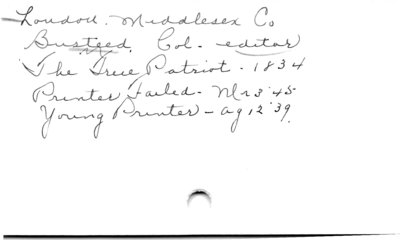 London. Middlesex Co
Busteed, Col. - editor
The True Patriot - 1834
Printer Failed - Mr 3 '45
Young Printer - ag 12 '39.